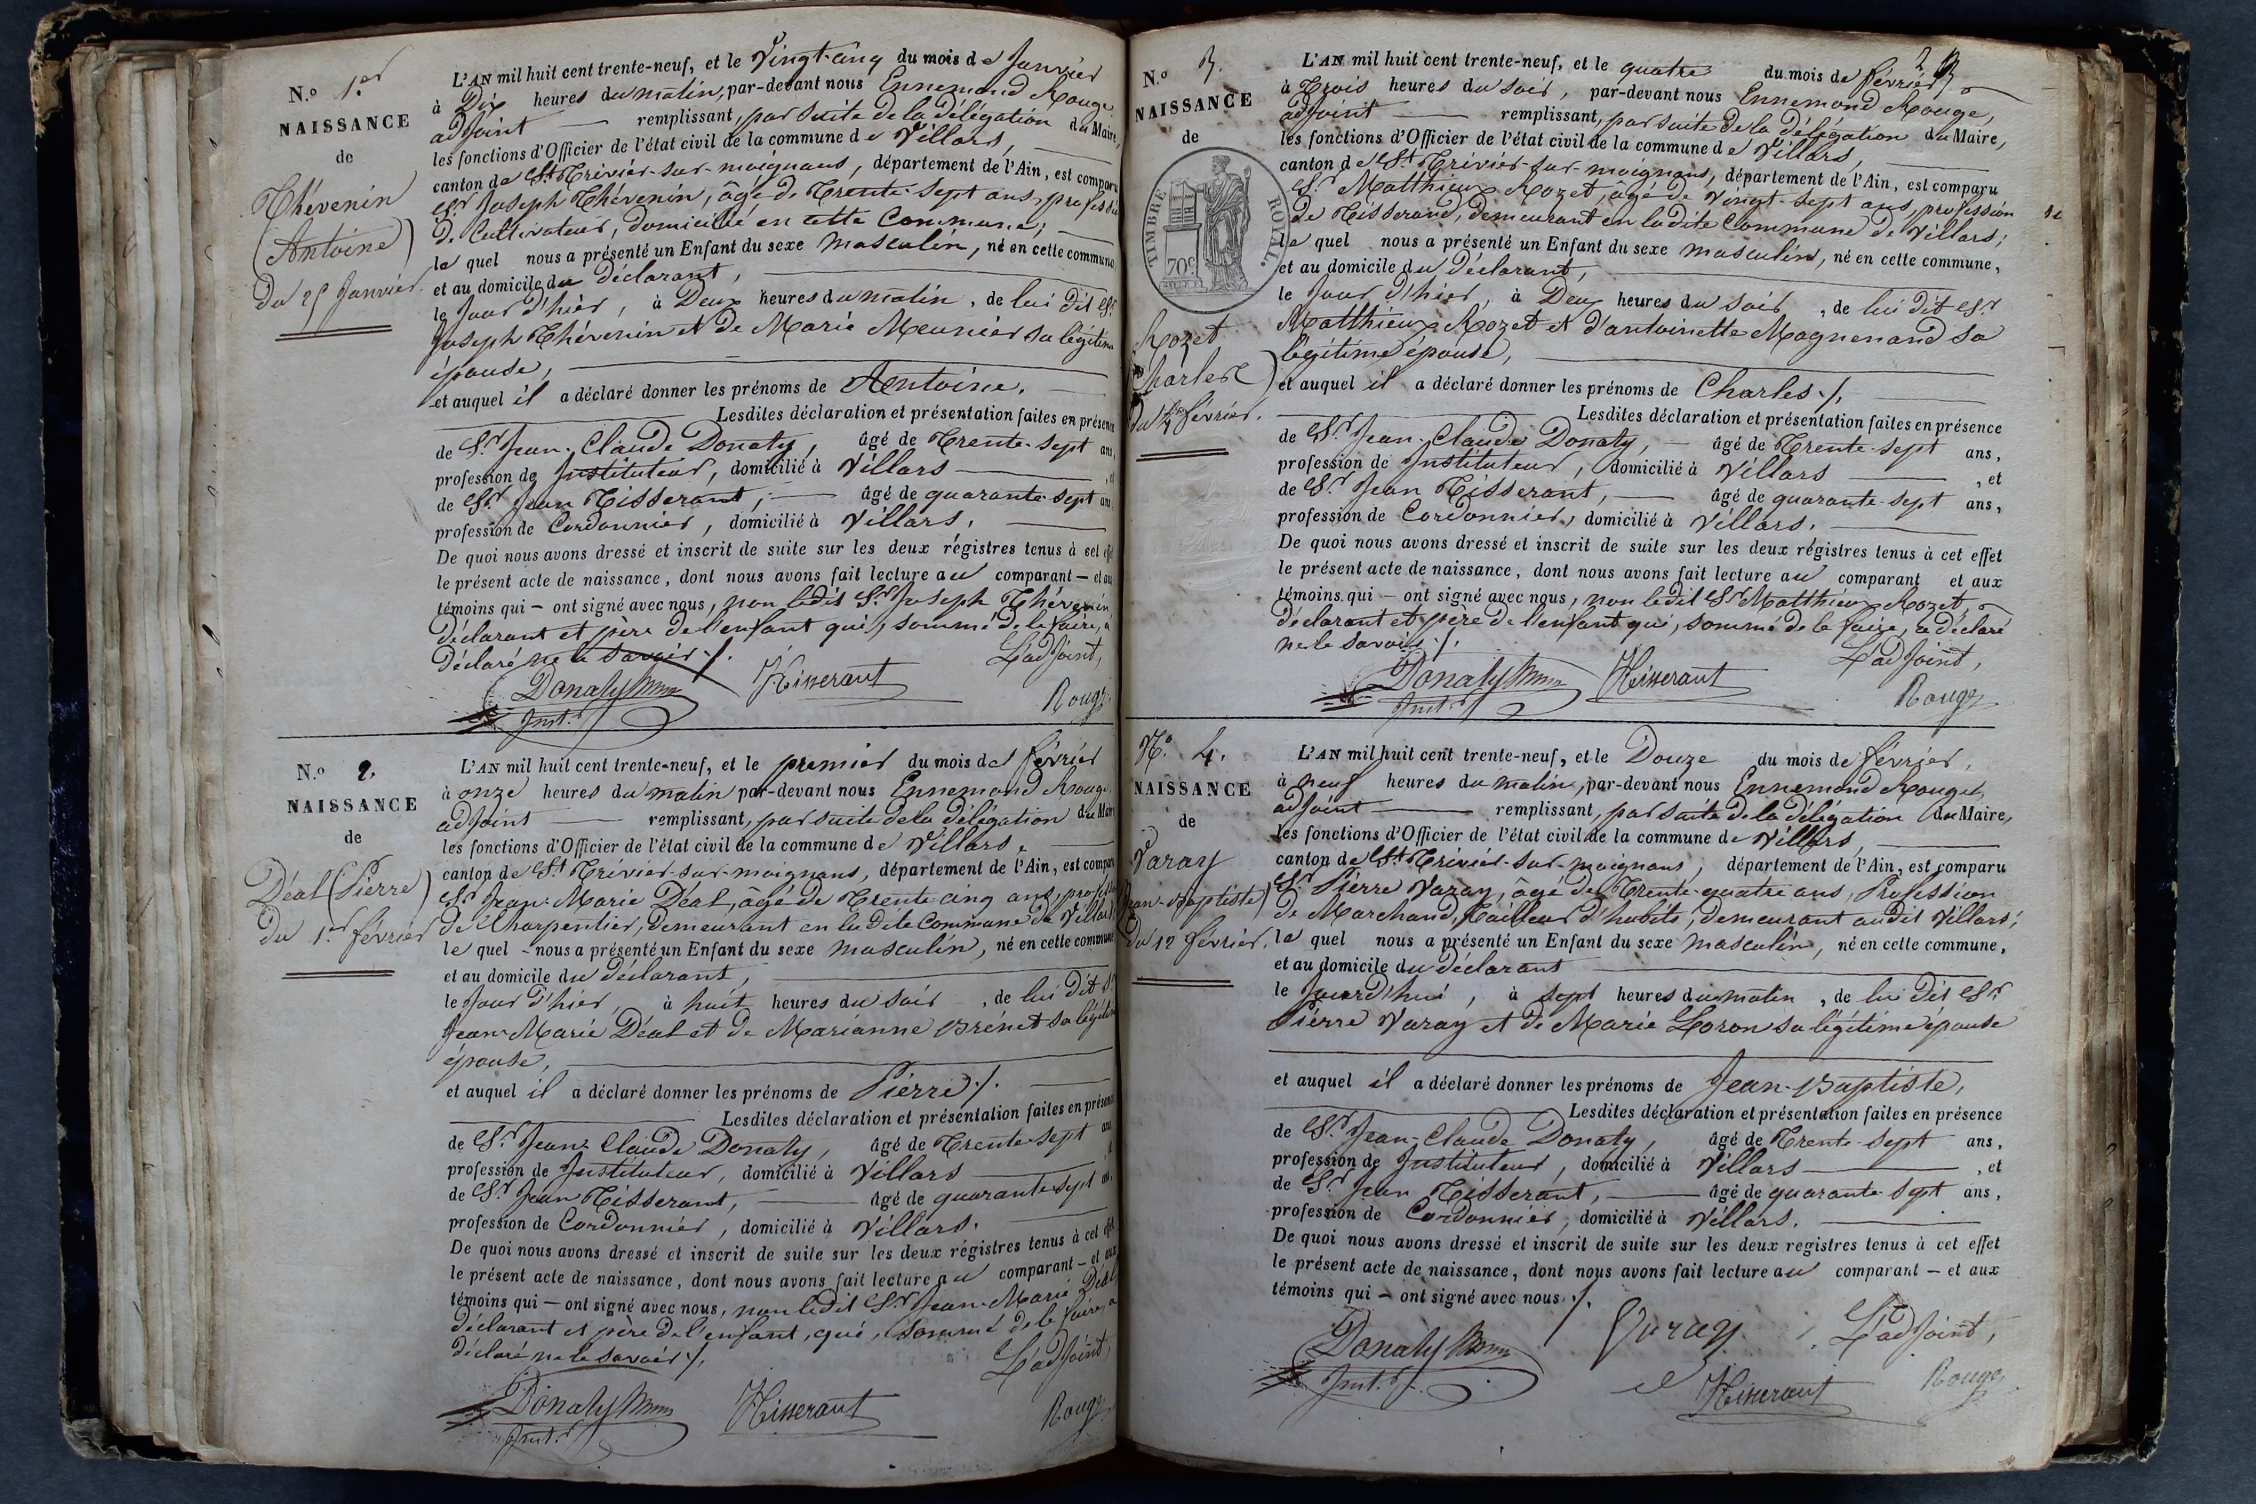 N.º 1.er
NAISSANCE
de
Thévenin
(Antoine)
Du 25 Janvier.
L'AN mil huit cent trente-neuf, et le Vingt-cinq du mois de Janvier
à Dix heures du matin, par-devant nous Ennemond Rouge,
adjoint remplissant, par suite de la délégation du Maire,
les fonctions d'Officier de l'état civil de la commune de Villars,
canton de St Trivier-sur-moignans, département de l'Ain, est comparu
Sr Joseph Thévenin, âgé de Trente-Sept ans, profession
de Cultivateur, domicilié en cette Commune;
le quel nous a présenté un Enfant du sexe masculin, né en cette commune
et au domicile du Déclarant,
le Jour d'hier, à Deux heures du matin, de lui dit Sr
Joseph Thévenin et de Marie Meunier sa légitime
épouse,
et auquel il a déclaré donner les prénoms de Antoine.
Lesdites déclaration et présentation faites en présence
de Sr Jean-Claude Donaty, âgé de Trente-Sept ans,
profession de Instituteur, domicilié à Villars, et
de Sr Jean Tisserant, âgé de quarante-sept ans
profession de Cordonnier, domicilié à Villars.
De quoi nous avons dressé et inscrit de suite sur les deux régistres tenus à cet effet
le présent acte de naissance, dont nous avons fait lecture au comparant — et aux
témoins qui — ont signé avec nous, non ledit Sr Joseph Thévenin
Déclarant et père de l'enfant qui, sommé de le faire, a
Déclaré ne le savoir ./.
L'adjoint,
Donaty
Inst.r
Tisserant
Rouge
N.º 2.
NAISSANCE
de
Déal (Pierre)
Du 1.er février
L'AN mil huit cent trente-neuf, et le premier du mois de février
à onze heures du matin par-devant nous Ennemond Rouge,
adjoint remplissant, par suite de la délégation du Maire
les fonctions d'Officier de l'état civil de la commune de Villars,
canton de St Trivier-sur-moignans, département de l'Ain, est comparu
Sr Jean-Marie Déal, âgé de Trente cinq ans, profession
de Charpentier, demeurant en la dite Commune de Villars
le quel - nous a présenté un Enfant du sexe masculin, né en cette commune
et au domicile du déclarant,
le Jour d'hier, à huit heures du soir, de lui Dit Sr
Jean-Marie Déal et de Marianne Brénet sa légitime
épouse,
et auquel il a déclaré donner les prénoms de Pierre ./.
Lesdites déclaration et présentation faites en présence
de Sr Jean-Claude Donaty, âgé de Trente-Sept ans
profession de Instituteur, domicilié à Villars
de Sr Jean Tisserant, âgé de quarante-Sept ans,
profession de Cordonnier, domicilié à Villars.
De quoi nous avons dressé et inscrit de suite sur les deux régistres tenus à cet effet
le présent acte de naissance, dont nous avons fait lecture au comparant — et aux
témoins qui — ont signé avec nous, non ledit Sr Jean-Marie Déal
déclarant et père de l'enfant, qui, sommé de le faire, a
déclaré ne le savoir ./.
L'adjoint,
Donaty
Inst.r
Tisserant
Rouge
N.º 3.
NAISSANCE
de
TIMBRE ROYAL.
70c
Rozet
Charles)
du 4 février.
L'AN mil huit cent trente-neuf, et le quatre du mois de février,
à Trois heures du soir, par-devant nous Ennemond Rouge,
adjoint remplissant, par suite de la délégation du Maire,
les fonctions d'Officier de l'état civil de la commune de Villars,
canton de St Trivier-sur-moignans, département de l'Ain, est comparu
Sr Matthieux Rozet, âgé de Vingt-Sept ans, profession
de Tisserand, demeurant en ladite Commune de Villars;
le quel nous a présenté un Enfant du sexe masculin, né en cette commune,
et au domicile du Déclarant,
le Jour d'hier, à Deux heures du soir, de lui dit Sr
Matthieux Rozet et d'antoinette Magnenand sa
légitime épouse,
et auquel il a déclaré donner les prénoms de Charles ./.
Lesdites déclaration et présentation faites en présence
de Sr Jean-Claude Donaty, — âgé de Trente-Sept ans,
profession de Instituteur, domicilié à Villars, et
de Sr Jean Tisserant, âgé de quarante-sept ans,
profession de Cordonnier, domicilié à Villars.
De quoi nous avons dressé et inscrit de suite sur les deux régistres tenus à cet effet
le présent acte de naissance, dont nous avons fait lecture au comparant et aux
témoins qui — ont signé avec nous, non ledit Sr Matthieux Rozet,
déclarant et père de l'enfant qui, sommé de le faire, a déclaré
ne le savoir ./.
L'adjoint,
Donaty
Inst.r
Tisserant
Rouge
N.º 4.
NAISSANCE
de
Varay
Jean-Baptiste)
Du 12 février.
L'AN mil huit cent trente-neuf, et le Douze du mois de février,
à neuf heures du matin, par-devant nous Ennemond Rouge,
adjoint remplissant, par suite de la délégation du Maire,
les fonctions d'Officier de l'état civil de la commune de Villars,
canton de St Trivier-sur-moignans, département de l'Ain, est comparu
Sr Pierre Varay, âgé de Trente-quatre ans, Profession
de Marchand, Tailleur d'habits, demeurant audit Villars;
le quel nous a présenté un Enfant du sexe masculin, né en cette commune,
et au domicile du déclarant
le Jourd'hui, à sept heures du matin, de lui dit Sr
Pierre Varay et de Marie Loron sa légitime épouse
et auquel il a déclaré donner les prénoms de Jean-Baptiste,
Lesdites déclaration et présentation faites en présence
de Sr Jean-Claude Donaty, âgé de Trente-Sept ans,
profession de Instituteur, domicilié à Villars, et
de Sr Jean Tisserant, âgé de quarante-Sept ans,
profession de Cordonnier, domicilié à Villars.
De quoi nous avons dressé et inscrit de suite sur les deux registres tenus à cet effet
le présent acte de naissance, dont nous avons fait lecture au comparant — et aux
témoins qui — ont signé avec nous ./.
Varay
L'adjoint,
Donaty
Inst.r
Tisserant
Rouge